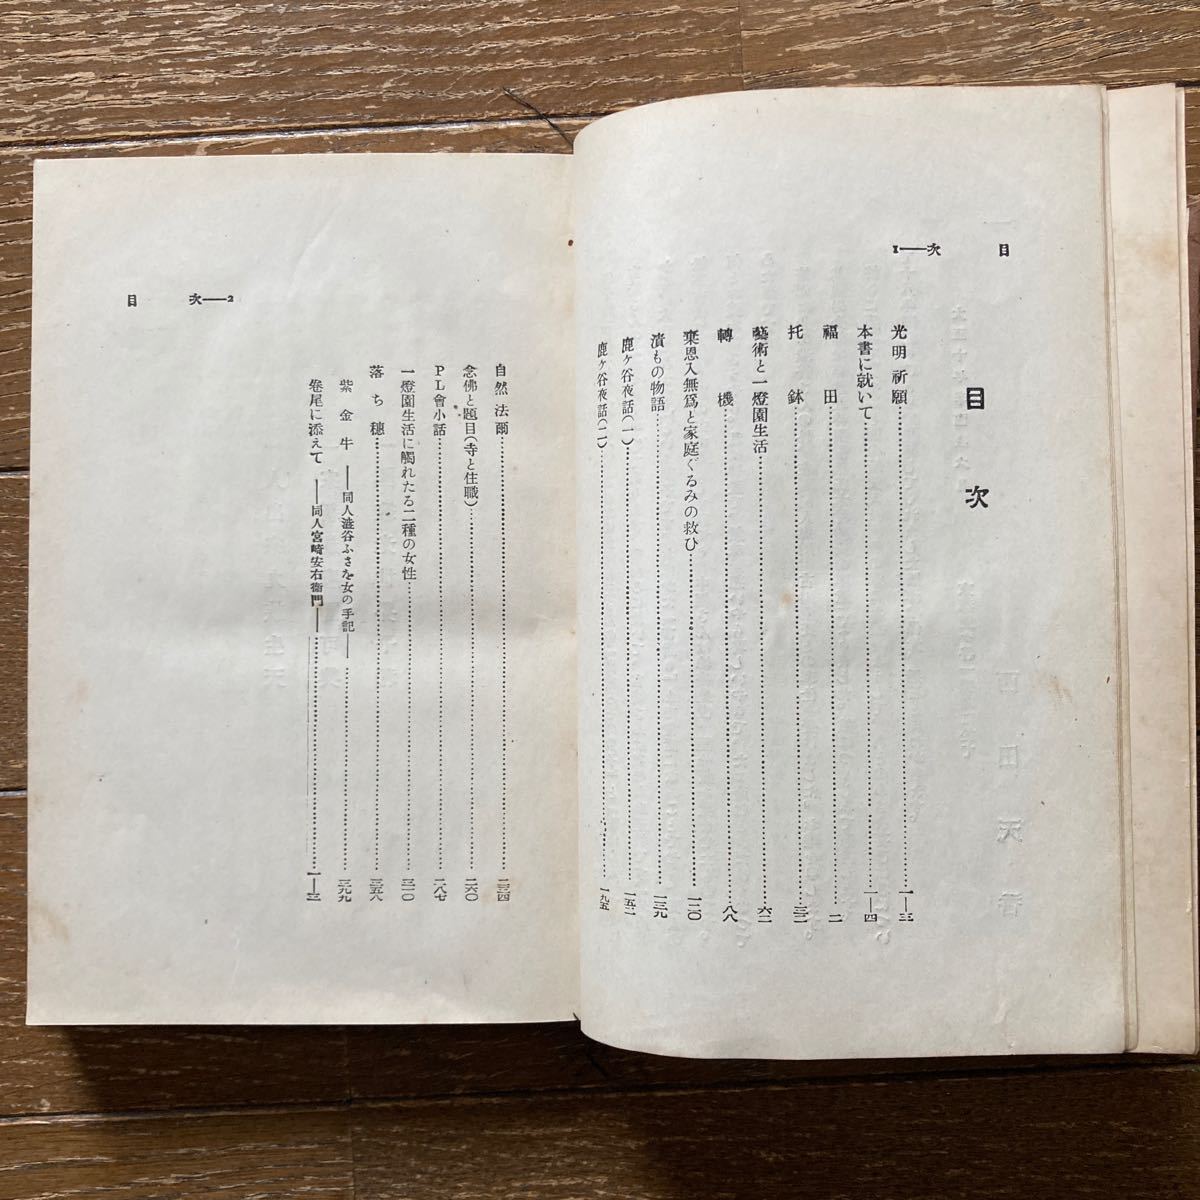 目次――1
目次
光明祈願……一―三
本書に就いて……一―四
福田……二
托鉢……三二
藝術と一燈園生活……六二
轉機……八八
棄恩入無爲と家庭ぐるみの救ひ……一二〇
潰もの物語……一三九
鹿ヶ谷夜話(一)……一五二
鹿ヶ谷夜話(二)……一九五
目次――2
自然法爾……二三四
念佛と題目(寺と住職)……二六〇
PL會小話……二八七
一燈園生活に觸れたる二種の女性……三一〇
落ち穗……三五八
紫金牛――同人澁谷ふさを女の手記――……三九九
卷尾に添えて――同人宮崎安右衞門――……一―三